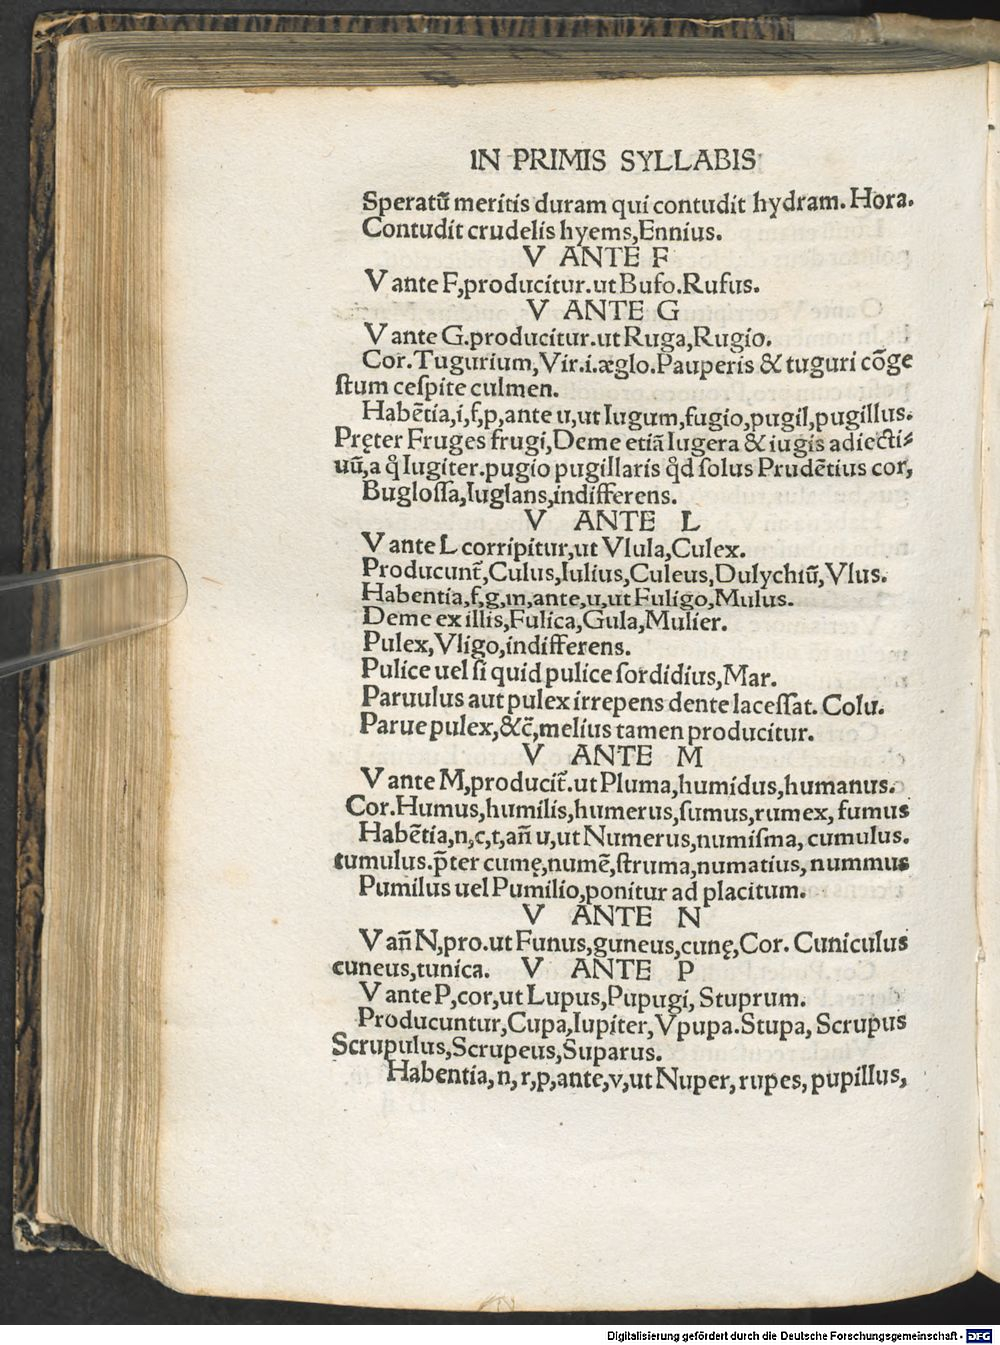 IN PRIMIS SYLLABIS
Speratũ meritis duram qui contudit hydram. Hora.
Contudit crudelis hyems,Ennius.
V ANTE F
V ante F,producitur.ut Bufo.Rufus.
V ANTE G
V ante G.producitur.ut Ruga,Rugio.
Cor.Tugurium,Vir.i.æglo.Pauperis & tuguri cõge
ſtum ceſpite culmen.
Habẽtia,i,f,p,ante u,ut Iugum,fugio,pugil,pugillus.
Pręter Fruges frugi,Deme etiã Iugera & iugis adiecti⸗
uũ,a q̊ Iugiter.pugio pugillaris q̊d ſolus Prudẽtius cor,
Bugloſſa,Iuglans,indifferens.
V ANTE L
V ante L corripitur,ut Vlula,Culex.
Producunt̃,Culus,Iulius,Culeus,Dulychiũ,Vlus.
Habentia,f,g,m,ante,u,ut Fuligo,Mulus.
Deme ex illis,Fulica,Gula,Mulier.
Pulex,Vligo,indifferens.
Pulice uel ſi quid pulice ſordidius,Mar.
Paruulus aut pulex irrepens dente laceſſat. Colu.
Parue pulex,&c̃,melius tamen producitur.
V ANTE M
V ante M,producit̃.ut Pluma,humidus,humanus.
Cor.Humus,humilis,humerus,ſumus,rumex, fumus
Habẽtia,n,c,t,añ u,ut Numerus,numiſma, cumulus.
tumulus.p̃ter cumę,numẽ,ſtruma,numatius, nummus
Pumilus uel Pumilio,ponitur ad placitum.
V ANTE N
V añ N,pro.ut Funus,guneus,cunę,Cor. Cuniculus
cuneus,tunica. V ANTE P
V ante P,cor,ut Lupus,Pupugi, Stuprum.
Producuntur,Cupa,Iupiter,Vpupa.Stupa, Scrupus
Scrupulus,Scrupeus,Suparus.
Habentia, n, r, p, ante, v, ut Nuper, rupes, pupillus,
Digitalisierung gefördert durch die Deutsche Forschungsgemeinschaft - DFG